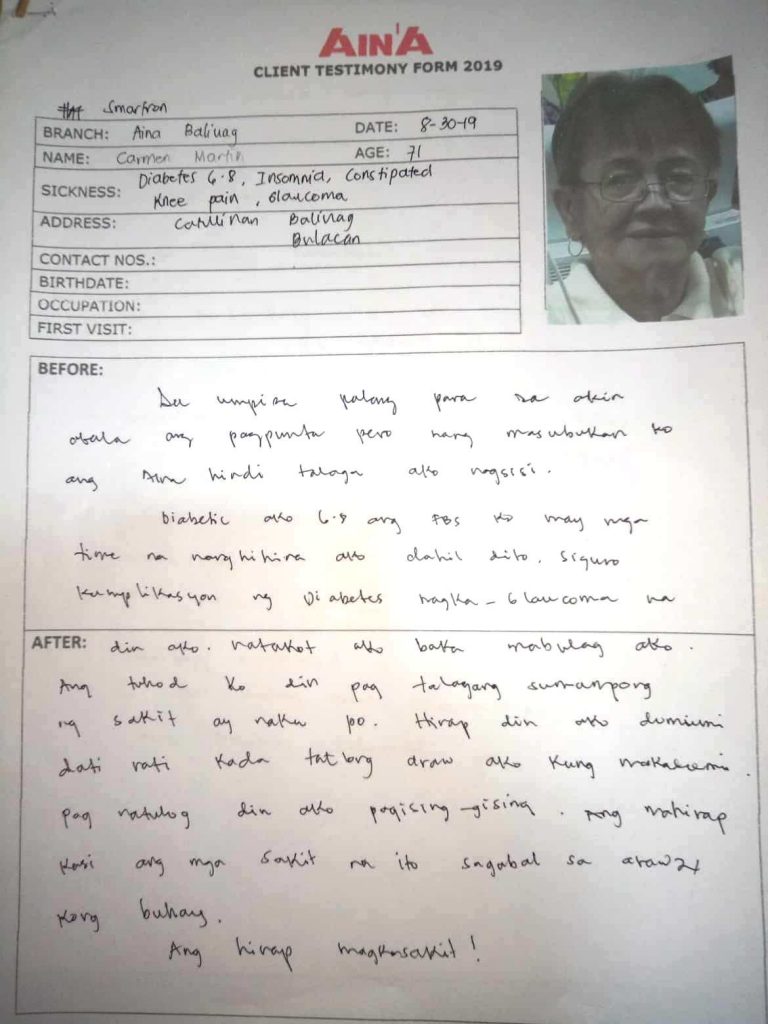 AIN'A
CLIENT TESTIMONY FORM 2019
Smartron
BRANCH: Aina Baliuag DATE: 8-30-19
NAME: Carmen Martin AGE: 71
SICKNESS: Diabetes 6.8, Insomnia, Constipated
Knee pain, Glaucoma
ADDRESS: Baliuag
Bulacan
CONTACT NOS.:
BIRTHDATE:
OCCUPATION:
FIRST VISIT:
BEFORE:
Sa umpisa palang para sa akin
abala ang pagpunta pero nang masubukan ko
ang Aina hindi talaga ako nagsisi.
Diabetic ako 6.8 ang FBS ko may mga
time na nanghihina ako dahil dito. Siguro
kumplikasyon ng Diabetes nagka-Glaucoma na
AFTER: din ako. Natakot ako baka mabulag ako.
Ang tuhod ko din pag talagang sumumpong
ng sakit ay naku po. Hirap din ako dumumi
dati rati kada tatlong araw ako kung
pag natulog din ako pagising-gising. Ang mahirap
kasi ang mga sakit na ito sagabal sa araw2x
kong buhay.
Ang hirap magkasakit!